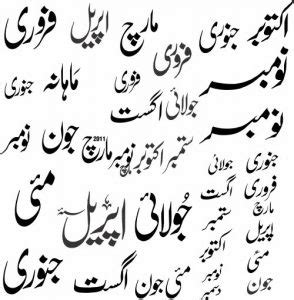 اکتوبر جنوری مارچ اپریل فروری
نومبر فروری
فروی ماہانہ جنوری
نومبر جولائی اگست
ستمبر اکتوبر نومبر مارچ 2011 جون نومبر
جنوری جولائی
فروری اگست
مارچ ستمبر
اپریل اکتوبر
مئی نومبر
جون دسمبر
جُولائی اپریل مئی
مئی جون اگست جنوری